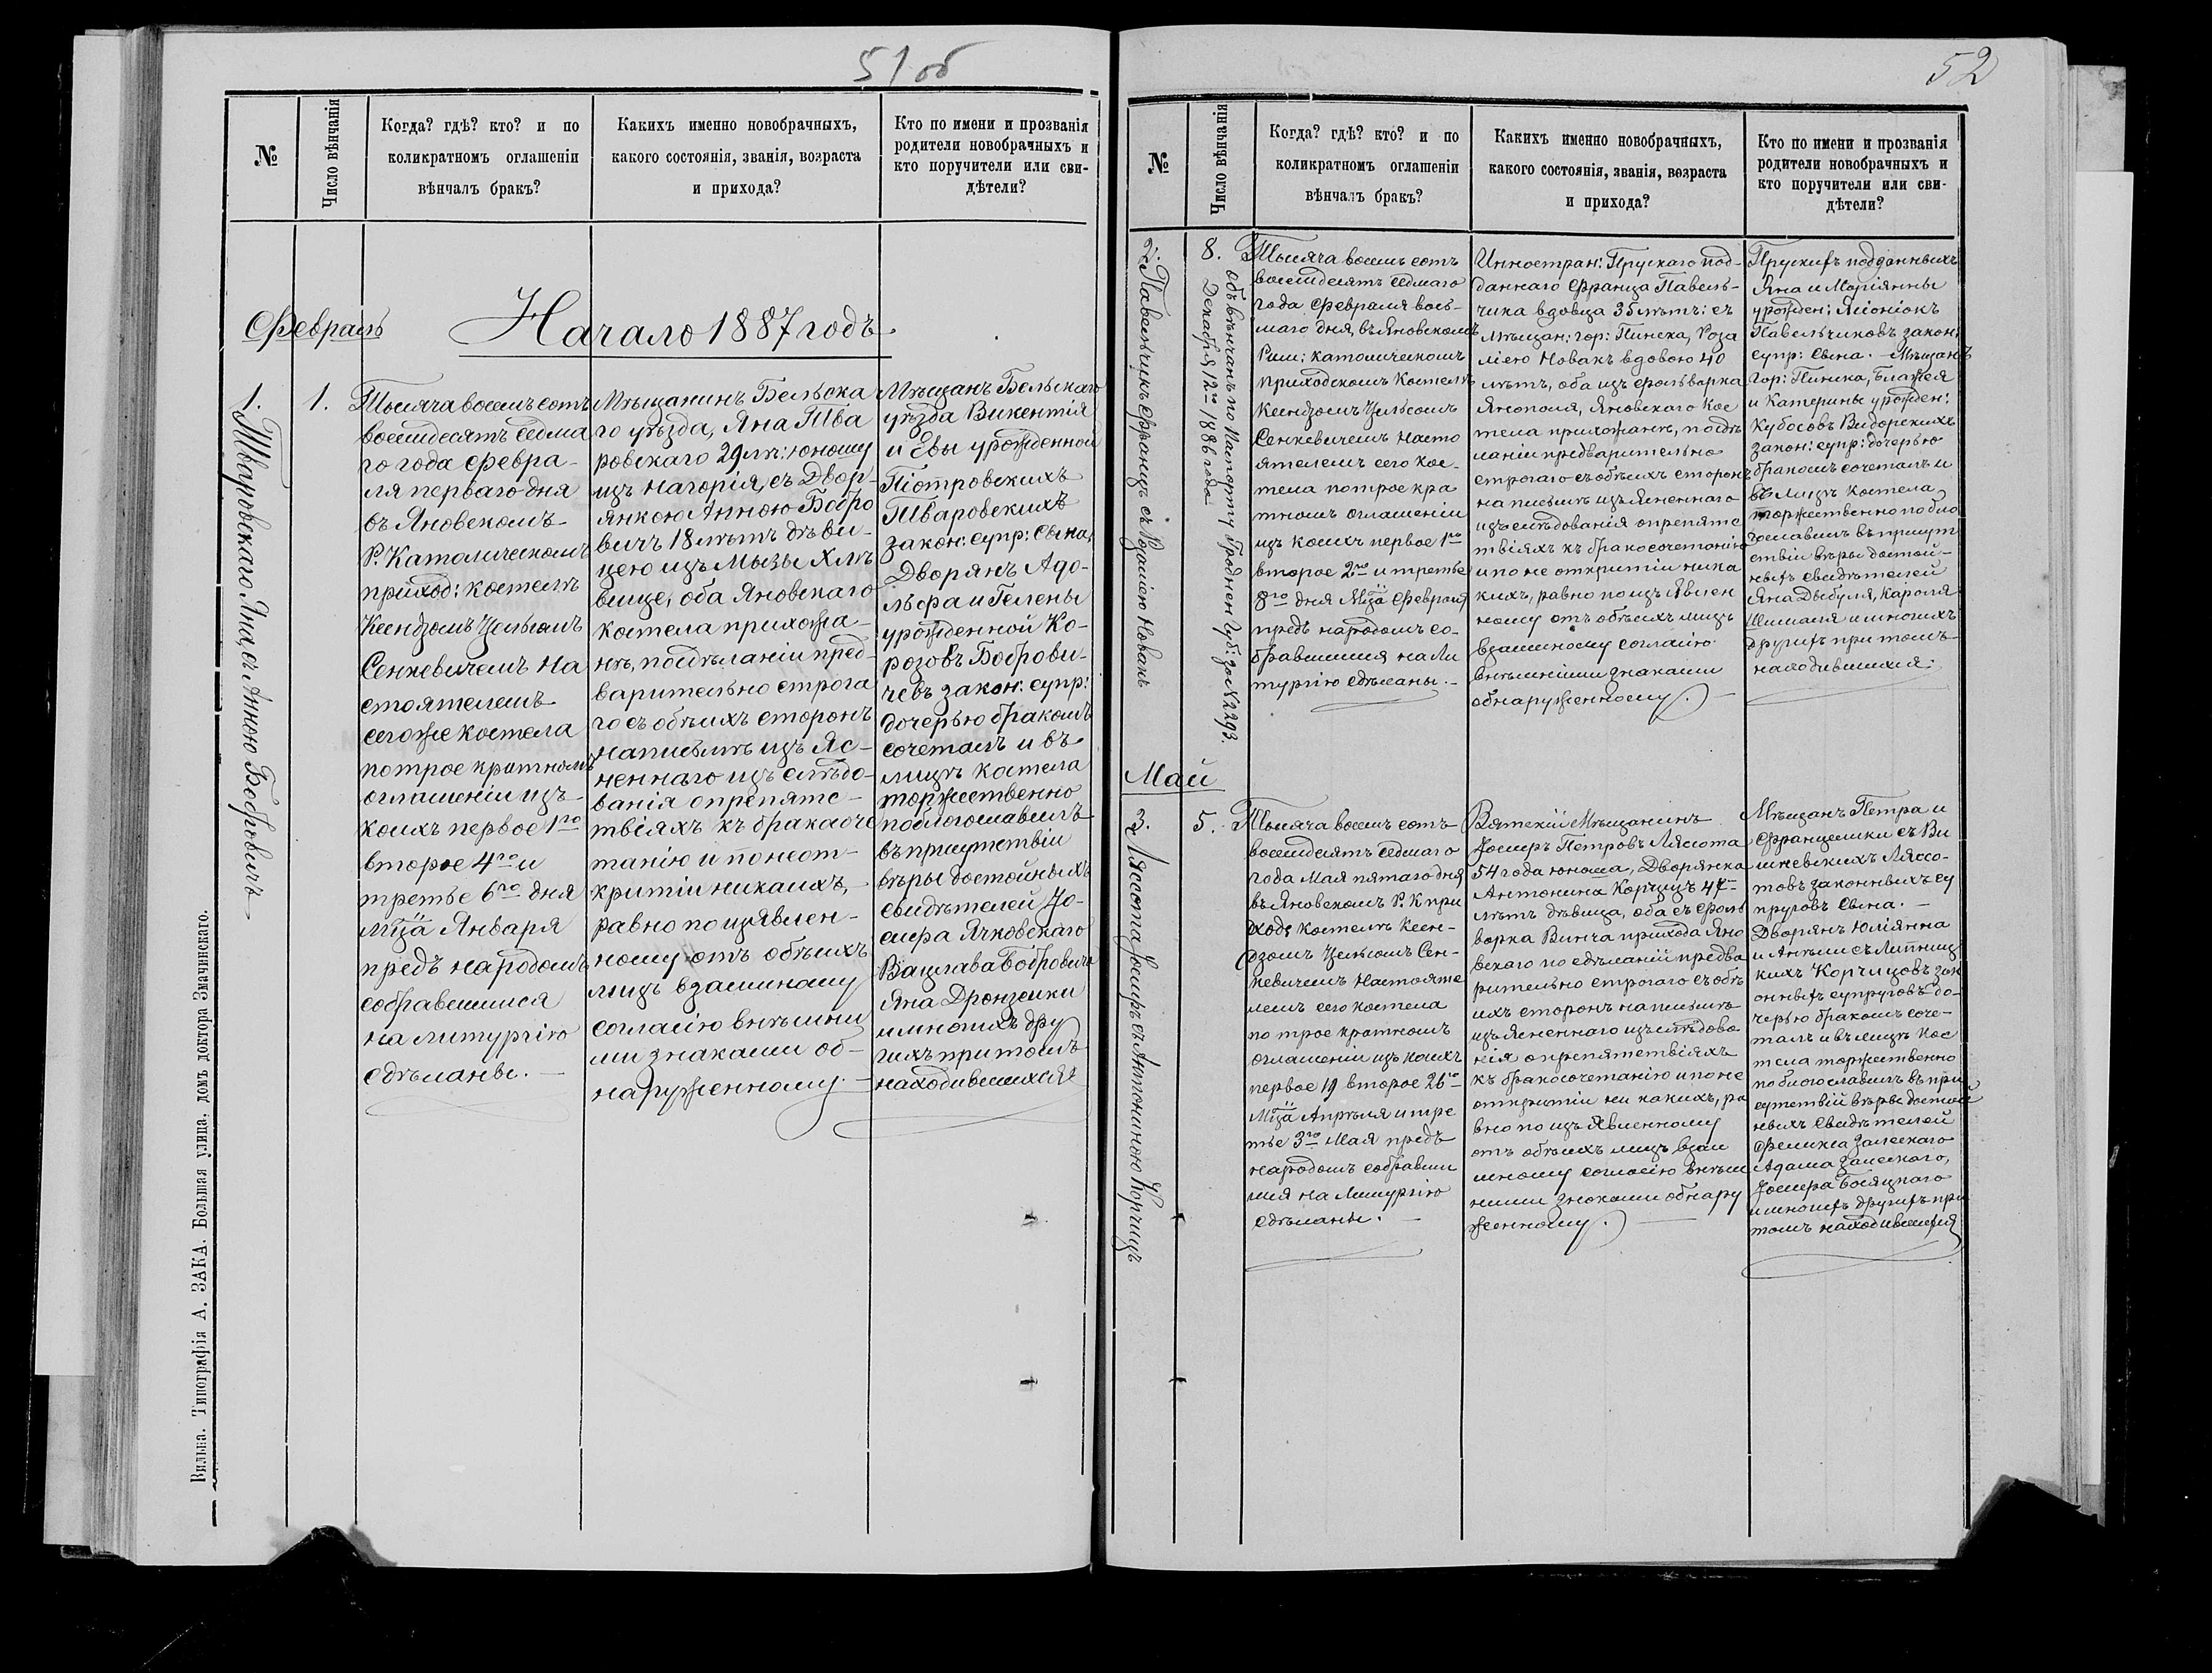 51 об
№
Число вѣнчанія
Когда? гдѣ? кто? и по
коликратномъ оглашеніи
вѣнчалъ бракъ?
Какихъ именно новобрачныхъ,
какого состоянія, званія, возраста
и прихода?
Кто по имени и прозванія
родители новобрачныхъ и
кто поручители или сви-
дѣтели?
Февраль
Начало 1887 годъ.
1.
Тваровскаго Яна, съ Анною Бобровичъ
1.
Тысяча восемь сотъ
восемдесятъ седма
го года Февра-
ля перваго дня
въ Яновскомъ
Р. Католическомъ
приход: костелѣ
Ксендзомъ Цельсомъ
Сенкевичемъ На
стоятелемъ
сегоже костела
по трое кратномъ
оглашеніи изъ
коихъ первое 1го
второе 4го и
третье 6го дня
Мца Января
предъ народомъ
собравшимся
на литургію
сдѣланы. —
Мѣщанинъ Бельска
го уѣзда, Яна Тва
ровскаго 29 лѣт: юношу
изъ Нагорія, съ Двор-
янкою Анною Бобро
вичъ 18 лѣтъ дѣви-
цею изъ Мызы Хлѣ
вище, оба Яновскаго
костела прихожа-
нѣ, по сдѣланіи пред-
варительно строга
го съ обѣихъ сторонъ
на письмѣ изъ Яс-
неннаго изъ слѣдо-
ванія о препятс-
твіяхъ къ бракасоче
танію и по неот-
критіи никаихъ,
равно по изявлен-
ному отъ обѣихъ
лицъ взаимному
согласію внѣшни
ми знаками об-
наруженному. —
Мѣщанъ Бельскаго
уѣзда Викентія
и Евы урожденной
Піотровскихъ
Тваровскихъ
закон: супр: сына,
Дворянъ Адо-
льфа и Гелены
урожденной Ко-
розовъ Боброви-
чевъ закон: супр:
дочерью бракомъ
сочеталъ и въ
лицѣ костела
торжественно
поблогославилъ
въ присутствіи
вѣры достойныхъ
свидѣтелей Іо-
сифа Ячковскаго
Вацлава Бобровича
Яна Дронзеики
и многихъ дру
гихъ при томъ
находившихся
Вильна. Типографія А. ЗАКА. Большая улица, домъ доктора Змачинскаго.
52
№
Число вѣнчанія
Когда? гдѣ? кто? и по
коликратномъ оглашеніи
вѣнчалъ бракъ?
Какихъ именно новобрачныхъ,
какого состоянія, званія, возраста
и прихода?
Кто по имени и прозванія
родители новобрачныхъ и
кто поручители или сви-
дѣтели?
2.
Павельчикъ Францъ съ Розаліею Новакъ
8.
обвѣнчанъ по паспорту Гроднен Губ: за № 2293.
Декабря 12го 1886 года
Тысяча восемь сотъ
восемдесятъ седмаго
года Февраля вось-
маго дня, въ Яновскомъ
Рим: католическомъ
приходскомъ Костелѣ
Ксендзомъ Цельсомъ
Сенкевичемъ насто
ятелемъ сего кос-
тела по трое кра
тномъ оглашеніи
изъ коихъ первое 1го
второе 2го и третье
8го дня Мца Февраля
предъ народомъ со-
бравшимся на Ли
тургію сдѣланы. —
Инностран: Прускаго под-
даннаго Франца Павель-
чика вдовца 35 лѣтъ: съ
мѣщан: гор: Пинска, Роза
ліею Новакъ вдовою 40
лѣтъ, оба изъ фольварка
Янополя, Яновскаго Кос
тела прихожанѣ, по сдѣ
ланіи предварительно
строгаго съ обѣихъ сторонъ
на письмѣ изъ Ясненнаго
изъ слѣдованія о препятс
твіяхъ къ бракосочетанію
и по не открытіи ника
кихъ, равно по изъ Явлен
ному отъ обѣихъ лицъ
взаимному согласію
внѣшними знаками
обнаруженному. —
Прускихъ подданныхъ
Яна и Маріянны
урожден: Ясіонокъ
Павельчиковъ закон:
супр: сына. — Мѣщанъ
гор: Пинска, Блажея
и Катерины урожден:
Кубосовъ Видорскихъ
закон: супр: дочерью
бракомъ сочеталъ и
въ лицѣ костела
торжественно побло
гославилъ въ присут
ствіи вѣры достой-
ныхъ свидѣтелей
Яна Дыбуля, Кароля
Шималя и многихъ
другихъ при томъ
находившихся.
Май
3.
Лясота Іосифъ съ Антониною Корчицъ
5.
Тысяча восемь сотъ
восемдесятъ седмаго
года Мая пятаго дня
въ Яновскомъ Р. К при
ход: костелѣ Ксен-
дзомъ Цельсомъ Сен-
кевичемъ Настояте
лемъ сего костела
по трое кратномъ
оглашеніи изъ коихъ
первое 19 второе 26го
Мца Апрѣля и тре
тье 3го Мая предъ
народомъ собравши
мся на Литургію
сдѣланы. —
Вятскій Мѣщанинъ
Іосифъ Петровъ Лясота
54 года юноша, Дворянка
Антонина Корчицъ 47
лѣтъ дѣвица, оба съ фоль
ворка Винча прихода Яно
вскаго по сдѣланіи предва
рительно строгаго съ обѣ
ихъ сторонъ на письмѣ
изъ Ясненнаго изъ слѣдова
нія о препятствіяхъ
къ бракосочетанію и по не
открытіи ни какихъ, ра
вно по изъ Явленному
отъ обѣихъ лицъ взаи
мному согласію внѣш
ними знаками обнару
женному. —
Мѣщанъ Петра и
Францишки съ Ви
линевскихъ Ляссо-
товъ законныхъ су
пруговъ сына. —
Дворянъ Юліянна
и Анѣли съ Липниц
кихъ Корчицовъ зак
онныхъ супруговъ до-
черью бракомъ соче-
талъ и въ лицѣ кос
тела торжественно
поблогославилъ въ при
сутствій вѣры достой
ныхъ свидѣтелей
Феликса Залескаго
Адама Залескаго,
Іосифа Босяцкаго
и многихъ другихъ при
томъ находившихся